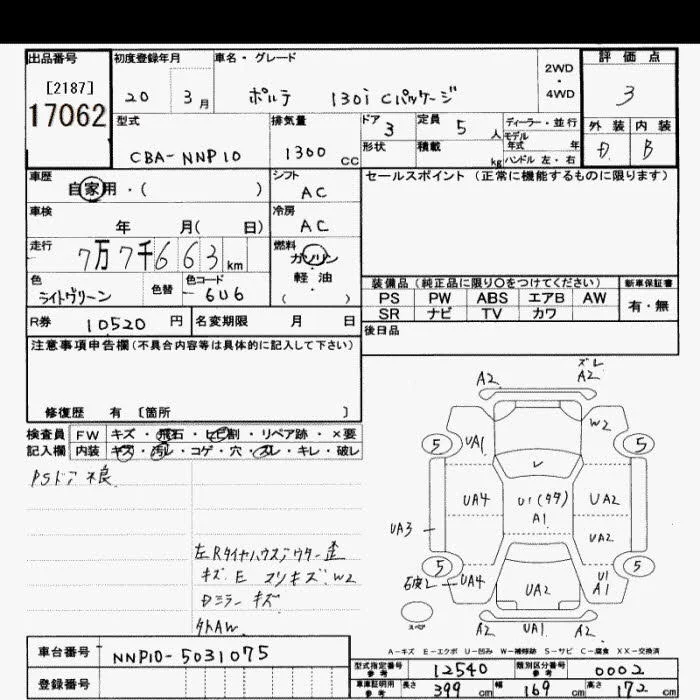 出品番号
[2187]
17062
初度登録年月
20 3月
車名・グレード
ポルテ 130i Cパッケージ
2WD
・
4WD
評価点
3
外装 内装
D B
型式
CBA-NNP10
排気量
1300 CC
ドア 3
定員 5 人
形状
積載 kg
ディーラー・並行
モデル
年式 年
ハンドル 左・右
車歴
自家用・( )
シフト
AC
セールスポイント (正常に機能するものに限ります)
車検
年 月( 日)
冷房
AC
走行
7万7千663km
燃料
ガソリン
・
軽油
( )
色
ライトグリーン
色替
色コード
6U6
装備品 (純正品に限り○をつけてください)
新車保証書
PS PW ABS エアB AW
SR ナビ TV カワ
有・無
R券 10520 円
名変期限 月 日
後日品
注意事項申告欄(不具合内容等は具体的に記入して下さい)
修復歴 有 [箇所 ]
検査員
記入欄
FW キズ・飛石・ヒビ割・リペア跡・×要
内装 キズ・汚レ・コゲ・穴・スレ・キレ・破レ
PSドア不良
左Rタイヤハウスアウター歪
キズ E スリキズ W2
Dミラー キズ
外AW
ズレ
A2 A2
W2
5 UA1 5
レ
UA4 U1(タタ) UA2
A1
UA3 UA2
5 5
破レ UA4 UA2 U1
A1
スペア
A2 UA1 A2
A-キズ E-エクボ U-凹み W-補修跡 S-サビ C-腐食 XX-交換済
車台番号 NNP10-5031075
登録番号
型式指定番号
参考
12540
類別区分番号
参考
0002
車庫証明用
参考
長さ 399 cm
幅 169 cm
高さ 172 cm